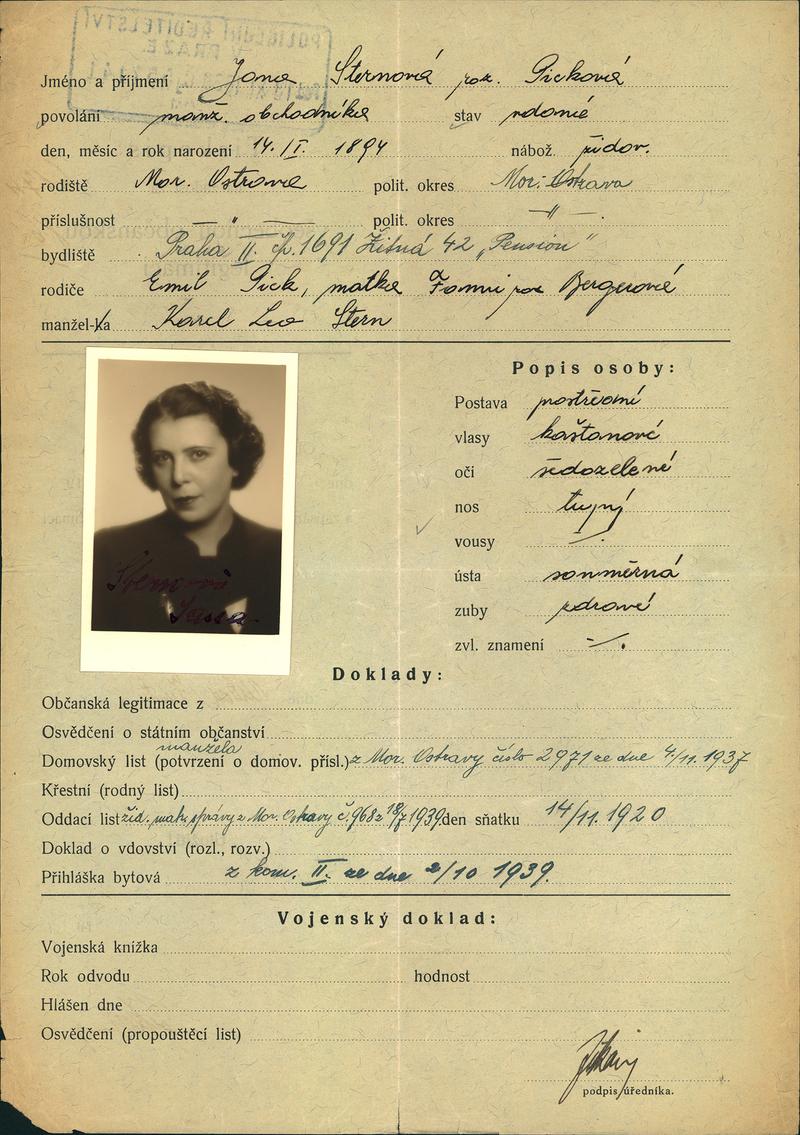 POLICEJNÍ ŘEDITELSTVÍ
V PRAZE
Jméno a příjmení Jana Sternová roz. Picková
povolání manž. obchodníka stav vdaná
den, měsíc a rok narození 14./I. 1894 nábož. židov.
rodiště Mor. Ostrava polit. okres Mor. Ostrava
příslušnost — " — polit. okres — " — .
bydliště Praha II. čp. 1691 Žitná 42 „Pension"
rodiče Emil Pick, matka Fanni roz Bergerová
manžel-ka Karel Leo Stern
Popis osoby:
Postava prostřední
vlasy kaštanové
oči šedozelené
nos tupý
vousy ·/.
ústa souměrná
zuby zdravé
zvl. znamení ·/.
Sternová
Jana
Doklady:
Občanská legitimace z
Osvědčení o státním občanství
manžela
Domovský list (potvrzení o domov. přísl.) z Mor. Ostravy číslo 2971 ze dne 4/11. 1937
Křestní (rodný list)
Oddací list žid. matr. správy z Mor. Ostravy č. 968 z 18/7 1939 den sňatku 14/11. 1920
Doklad o vdovství (rozl., rozv.)
Přihláška bytová z kom. II. ze dne 2/10 1939.
Vojenský doklad:
Vojenská knížka
Rok odvodu hodnost
Hlášen dne
Osvědčení (propouštěcí list)
podpis úředníka.